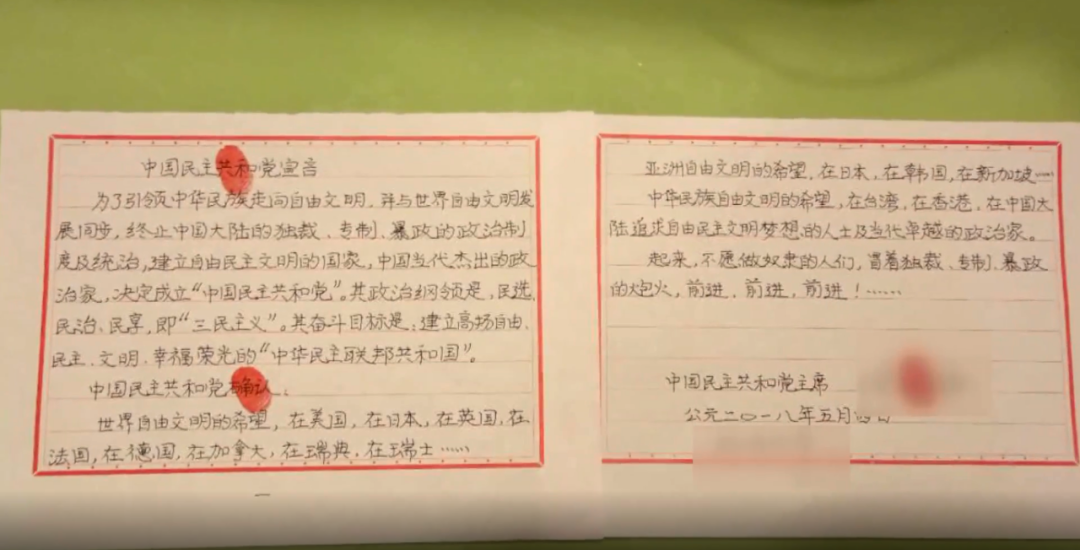 中国民主共和党宣言
为了引领中华民族走向自由文明，并与世界自由文明发
展同步，终止中国大陆的独裁、专制、暴政的政治制
度及统治，建立自由民主文明的国家，中国当代杰出的政
治家，决定成立“中国民主共和党”。其政治纲领是，民选、
民治、民享，即“三民主义”。其奋斗目标是：建立高扬自由、
民主、文明、幸福荣光的“中华民主联邦共和国”。
中国民主共和党确认：
世界自由文明的希望，在美国，在日本，在英国，在
法国，在德国，在加拿大，在瑞典，在瑞士……
一
亚洲自由文明的希望，在日本，在韩国，在新加坡……
中华民族自由文明的希望，在台湾，在香港，在中国大
陆追求自由民主文明梦想的人士及当代卓越的政治家。
起来，不愿做奴隶的人们，冒着独裁、专制、暴政
的炮火，前进，前进，前进！……
中国民主共和党主席
公元二〇一八年五月